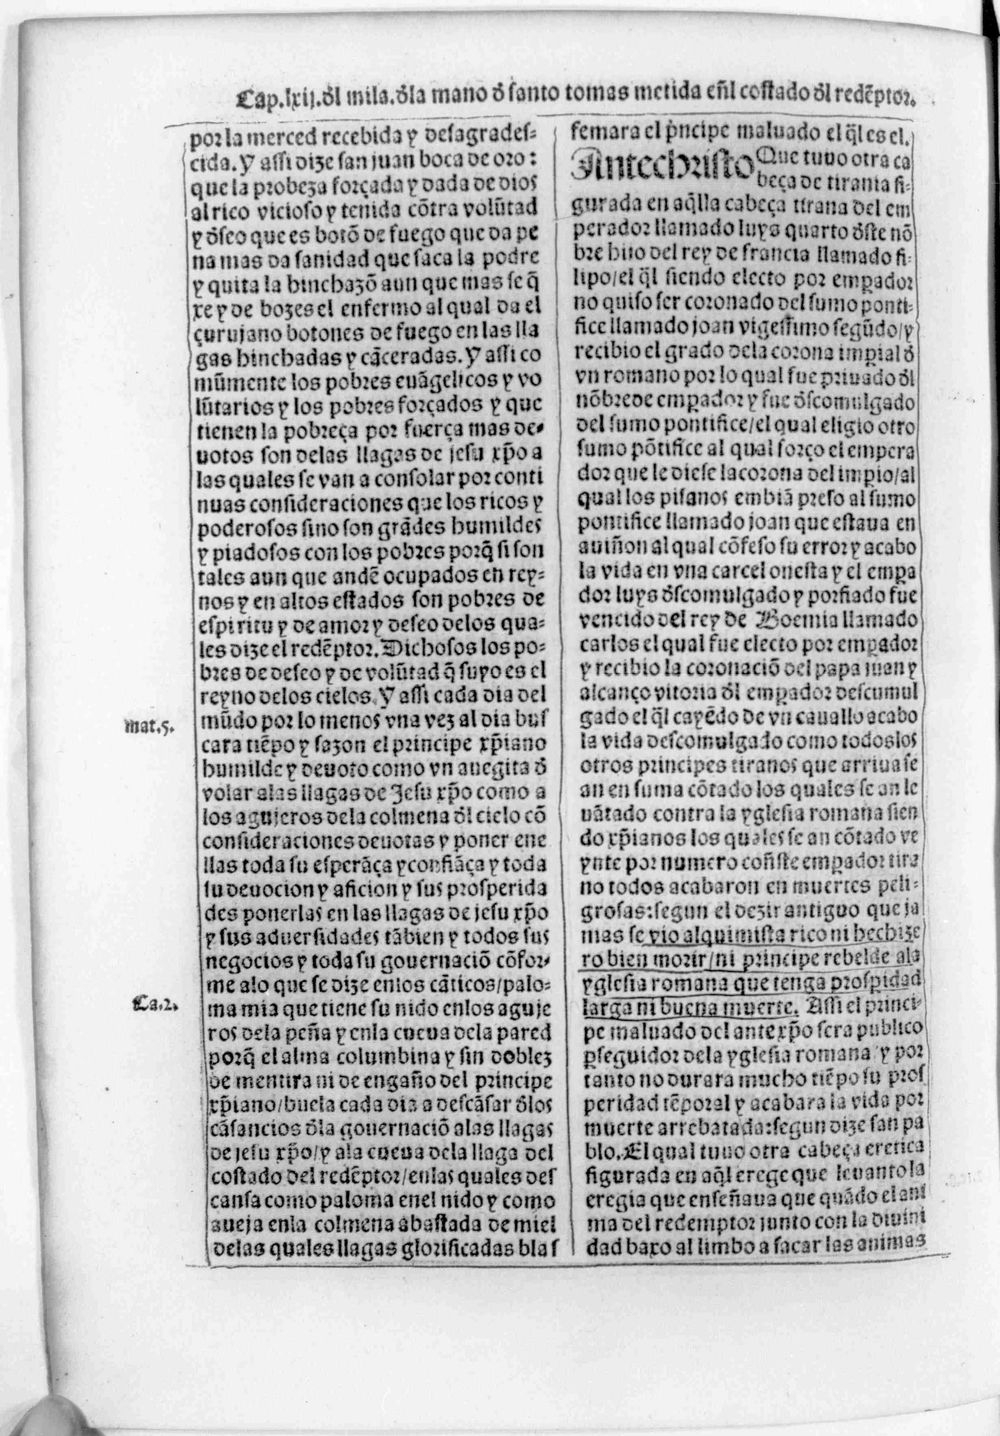 Cap.lxij.đl mila.đla mano đ santo tomas metida eñl costado đl redẽptor.
por la merced recebida y desagrades-
cida. Y assi dize san juan boca de oro:
que la probeza forçada y dada de dios
al rico vicioso y tenida cõtra volũtad
y đseo que es botõ de fuego que da pe
na mas da sanidad que saca la podre
y quita la hinchazõ aun que mas se q̃
xe y de bozes el enfermo al qual da el
çurujano botones de fuego en las lla
gas hinchadas y cãceradas. Y assi co
mũmente los pobres euãgelicos y vo
lũtarios y los pobres forçados y que
tienen la pobreça por fuerça mas de-
uotos son delas llagas de jesu xp̃o a
las quales se van a consolar por conti
nuas consideraciones que los ricos y
poderosos sino son grãdes humildes
y piadosos con los pobres porq̃ si son
tales aun que andẽ ocupados en rey-
nos y en altos estados son pobres de
espiritu y de amor y deseo delos qua-
les dize el redẽptor. Dichosos los po-
bres de deseo y de volũtad q̃ suyo es el
reyno delos cielos. Y assi cada dia del
mat.5.
mũdo por lo menos vna vez al dia bus
cara tiẽpo y sazon el principe xp̃iano
humilde y deuoto como vn auegita đ
volar alas llagas de Jesu xp̃o como a
los agujeros dela colmena đl cielo cõ
consideraciones deuotas y poner ene
llas toda su esperãça y confiãça y toda
su deuocion y aficion y sus prosperida
des ponerlas en las llagas de jesu xp̃o
y sus aduersidades tãbien y todos sus
negocios y toda su gouernaciõ cõfor-
me alo que se dize enlos cãticos/palo-
Ca.2.
ma mia que tiene su nido enlos aguje
ros dela peña y enla cueua dela pared
porq̃ el alma columbina y sin doblez
de mentira ni de engaño del principe
xp̃iano/buela cada dia a descãsar đlos
cãsancios đla gouernaciõ alas llagas
de jesu xp̃o/y ala cueua dela llaga del
costado del redẽptor/enlas quales des
cansa como paloma enel nido y como
aueja enla colmena abastada de miel
delas quales llagas glorificadas blas
femara el p̃ncipe maluado el q̃l es el.
Antechristo Que tuuo otra ca
beça de tirania fi-
gurada en aq̃lla cabeça tirana del em
perador llamado luys quarto đste nõ
bre hijo del rey de francia llamado fi-
lipo/el q̃l siendo electo por empador
no quiso ser coronado del sumo ponti-
fice llamado joan vigessimo segũdo/y
recibio el grado dela corona impial đ
vn romano por lo qual fue priuado đl
nõbre de empador y fue đscomulgado
del sumo pontifice/el qual eligio otro
sumo põtifice al qual forço el empera
dor que le diese la corona del impio/al
qual los pisanos embiã preso al sumo
pontifice llamado joan que estaua en
auiñon al qual cõfeso su error y acabo
la vida en vna carcel onesta y el empa
dor luys đscomulgado y porfiado fue
vencido del rey de Boemia llamado
carlos el qual fue electo por empador
y recibio la coronaciõ del papa juan y
alcanço vitoria đl empador descumul
gado el q̃l cayẽdo de vn cauallo acabo
la vida descomulgado como todos los
otros principes tiranos que arriua se
an en suma cõtado los quales se an le
uãtado contra la yglesia romana sien
do xp̃ianos los quales se an cõtado ve
ynte por numero coñste empador tira
no todos acabaron en muertes peli-
grosas:segun el dezir antiguo que ja
mas se vio alquimista rico ni hechize
ro bien morir/ni principe rebelde ala
yglesia romana que tenga prospidad
larga ni buena muerte. Assi el princi-
pe maluado del antexp̃o sera publico
pseguidor dela yglesia romana y por
tanto no durara mucho tiẽpo su pros
peridad tẽporal y acabara la vida por
muerte arrebatada:segun dize san pa
blo. El qual tuuo otra cabeça eretica
figurada en aq̃l erege que leuanto la
eregia que enseñaua que quãdo el ani
ma del redemptor junto con la diuini
dad baxo al limbo a sacar las animas